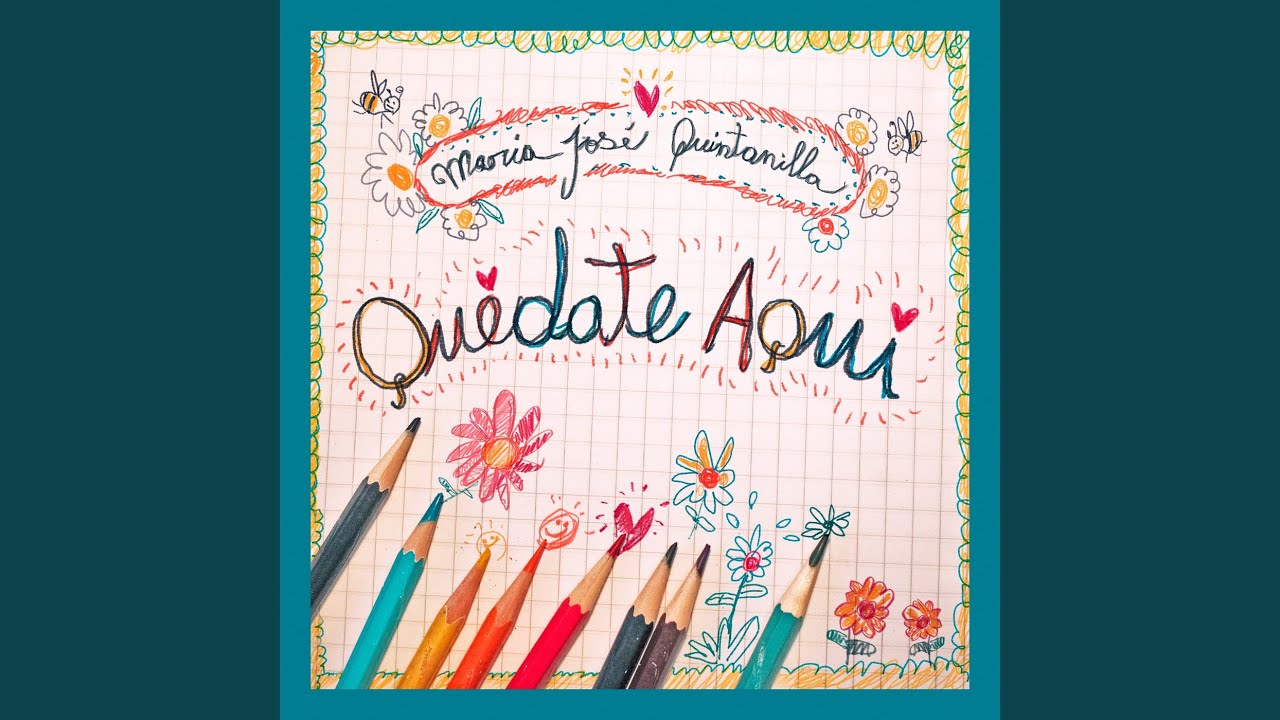 Maria José Quintanilla
Quédate Aqui